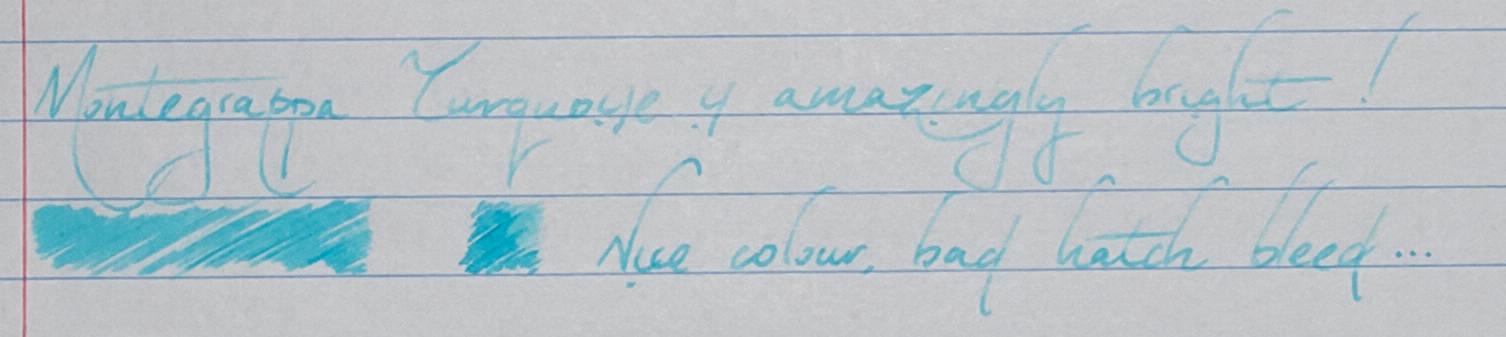 Montegrappa Turquoise is amazingly bright!
Nice colour, bad hatch bleed...